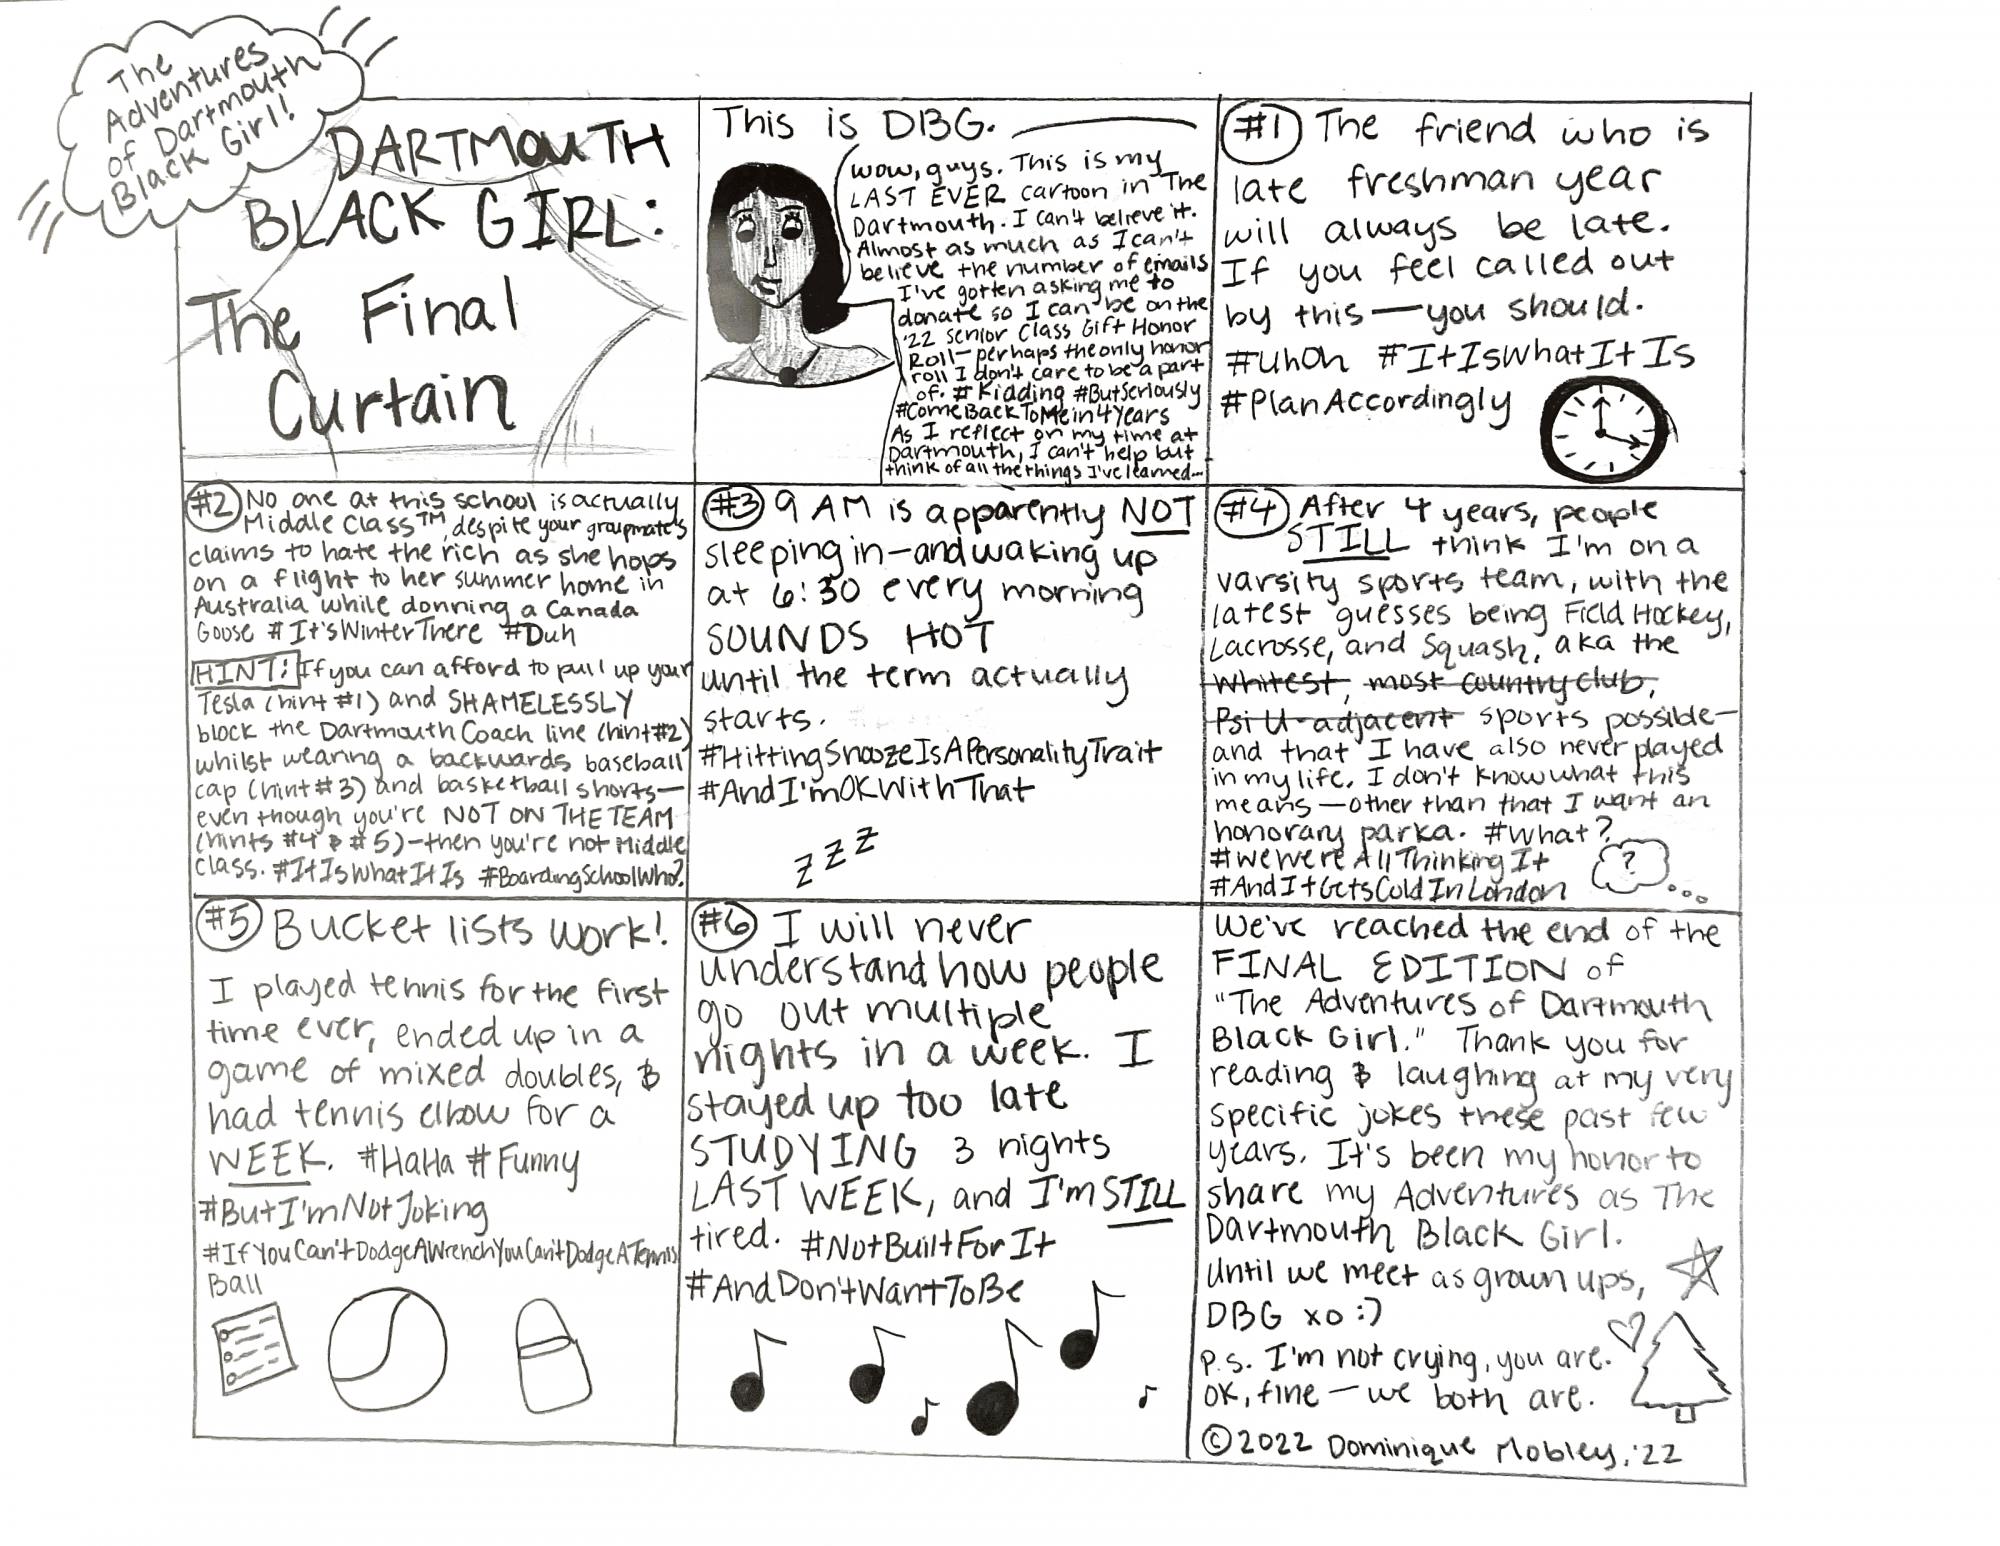 The
Adventures
of Dartmouth
Black Girl!
DARTMOUTH
BLACK GIRL:
The Final
Curtain
This is DBG.
wow, guys. This is my
LAST EVER cartoon in The
Dartmouth. I can't believe it.
Almost as much as I can't
believe the number of emails
I've gotten asking me to
donate so I can be on the
'22 Senior Class Gift Honor
Roll—perhaps the only honor
roll I don't care to be a part
of. #Kidding #ButSeriously
#ComeBackToMein4Years
As I reflect on my time at
Dartmouth, I can't help but
think of all the things I've learned...
#1 The friend who is
late freshman year
will always be late.
If you feel called out
by this—you should.
#UhOh #ItIsWhatItIs
#PlanAccordingly
#2 No one at this school is actually
Middle Class™, despite your groupmate's
claims to hate the rich as she hops
on a flight to her summer home in
Australia while donning a Canada
Goose #It'sWinterThere #Duh
HINT: If you can afford to pull up your
Tesla (hint #1) and SHAMELESSLY
block the Dartmouth Coach line (hint #2)
whilst wearing a backwards baseball
cap (hint #3) and basketball shorts—
even though you're NOT ON THE TEAM
(hints #4 & #5)—then you're not Middle
Class. #ItIsWhatItIs #BoardingSchoolWho?
#3 9 AM is apparently NOT
sleeping in—and waking up
at 6:30 every morning
SOUNDS HOT
until the term actually
starts.
#HittingSnoozeIsAPersonalityTrait
#AndI'mOKWithThat
z z z
#4 After 4 years, people
STILL think I'm on a
varsity sports team, with the
latest guesses being Field Hockey,
Lacrosse, and Squash, aka the
whitest, most country club,
Psi U-adjacent sports possible—
and that I have also never played
in my life. I don't know what this
means—other than that I want an
honorary parka. #What?
#WeWereAllThinkingIt
#AndItGetsColdInLondon
?
#5 Bucket lists work!
I played tennis for the first
time ever, ended up in a
game of mixed doubles, &
had tennis elbow for a
WEEK. #HaHa #Funny
#ButI'mNotJoking
#IfYouCan'tDodgeAWrenchYouCan'tDodgeATennis
Ball
#6 I will never
understand how people
go out multiple
nights in a week. I
stayed up too late
STUDYING 3 nights
LAST WEEK, and I'm STILL
tired. #NotBuiltForIt
#AndDon'tWantToBe
We've reached the end of the
FINAL EDITION of
"The Adventures of Dartmouth
Black Girl." Thank you for
reading & laughing at my very
specific jokes these past few
years. It's been my honor to
share my Adventures as The
Dartmouth Black Girl.
Until we meet as grown ups,
DBG xo :)
p.s. I'm not crying, you are.
OK, fine—we both are.
©2022 Dominique Mobley, '22